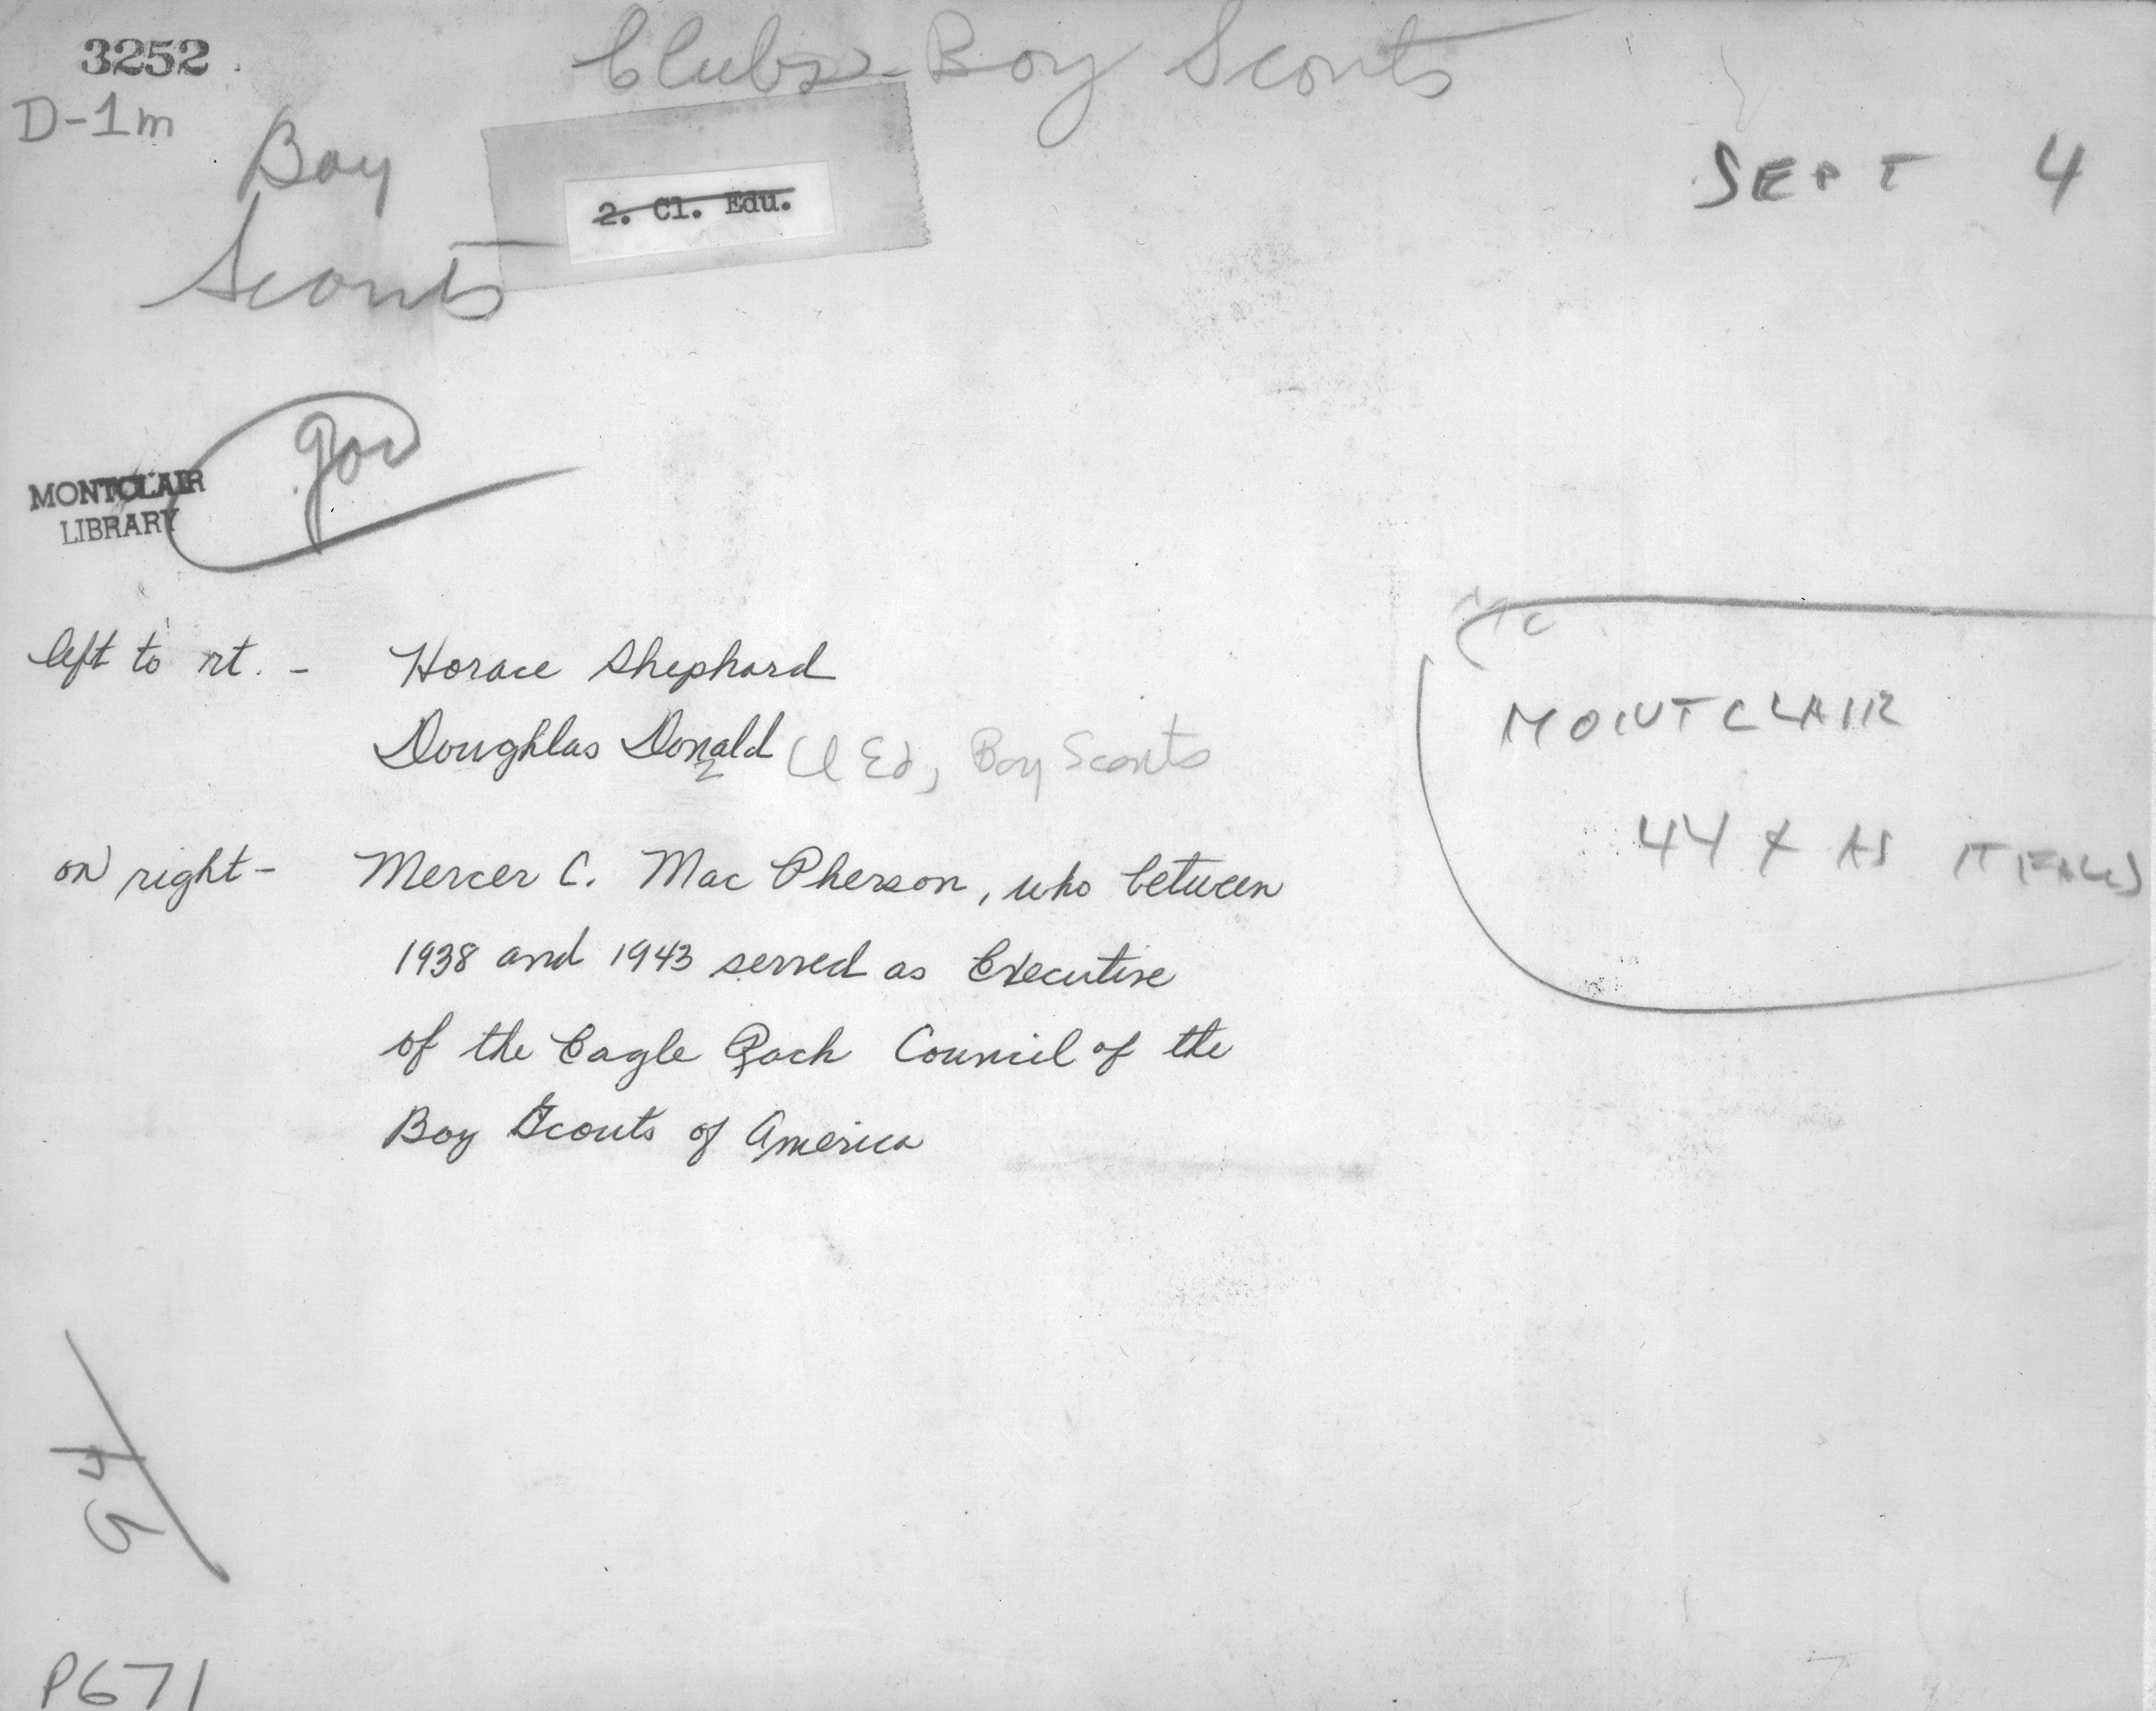 3252
Clubs - Boy Scouts
D-1m
Boy
Scouts
2. Cl. Edu.
SEPT 4
gov
MONTCLAIR
LIBRARY
left to rt. - Horace Shephard
Doughlas Donald Cl Ed, Boy Scouts
on right - Mercer C. Mac Pherson, who between
1938 and 1943 served as Executive
of the Eagle Rock Council of the
Boy Scouts of America
MONTCLAIR
44 x AS IT FALLS
P671